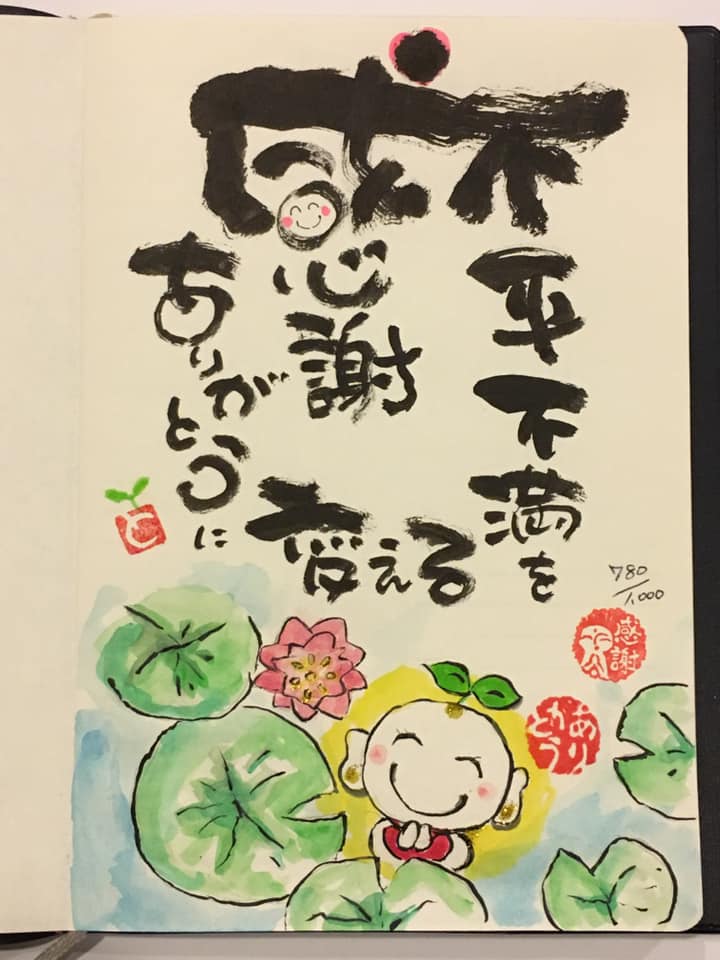 不平不満を
感謝
ありがとうに
変える
780/1,000
感謝
ありがとう